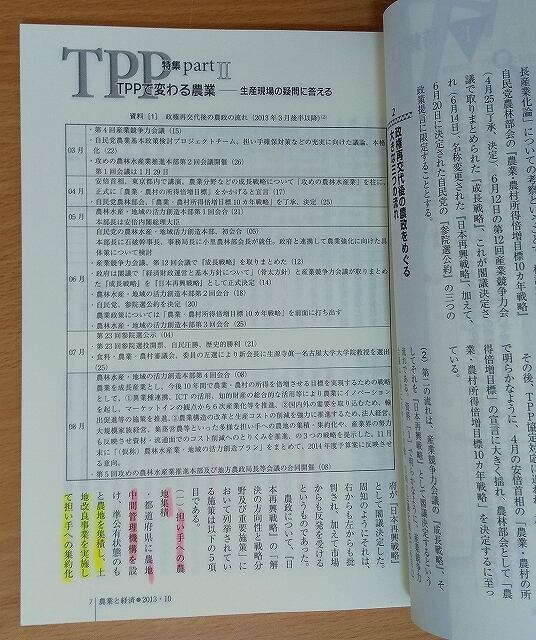 TPP 特集 part Ⅱ
TPPで変わる農業――生産現場の疑問に答える
資料［1］ 政権再交代後の農政の流れ（2013年3月後半以降）
03月
・第4回産業競争力会議（15）
・自民党農業基本政策検討プロジェクトチーム、担い手確保対策などの充実に向けた議論、本格
化（22）
・攻めの農林水産業推進本部第2回会議開催（26）
第1回会議は1月29日
04月
安倍首相、東京都内で講演、農業分野などの成長戦略について「攻めの農林水産業」を柱に、
正式に「農業・農村所得倍増目標」をかかげると宣言（17）
・自民党農林部会、「農業・農村所得倍増目標10カ年戦略」を了承、決定（25）
05月
農林水産・地域の活力創造本部第1回会合（21）
本部長は安倍内閣総理大臣
06月
自民党の農林水産・地域の活力創造本部、初会合（05）
本部長に石破幹事長、事務局長に小里農林部会長が就任。政府と連携して農業強化に向けた具
体策について検討
・産業競争力会議、第12回会議で「成長戦略」を取りまとめた（12）
・政府は閣議で「経済財政運営と基本方針について」（骨太方針）と産業競争力会議が取りまとめ
た「成長戦略」を『日本再興戦略』として正式決定（14）
・農林水産・地域の活力創造本部第2回会合（18）
・自民党、参院選公約を決定（20）
農業政策については「農業・農村所得倍増目標10カ年戦略」を前面に打ち出す
・農林水産・地域の活力創造本部第3回会合（25）
07月
第23回参院選公示（04）
・第23回参院選投開票、自民圧勝、歴史的勝利（21）
・食料・農業・農村審議会、委員の互選により新会長に生源寺眞一名古屋大学大学院教授を選出
（25）
08月
農林水産・地域の活力創造本部第4回会合（08）
農業を成長産業とし、今後10年間で農業・農村の所得を倍増させる目標を実現するための戦略
として、①異業種連携、ICTの活用、知的財産の総合的な活用等により農業にイノベーション
を起こし、マーケットインの観点から6次産業化等を推進、②国内外の需要を取り込むため、輸
出促進等の施策を推進、③農業構造の改革と生産コストの削減を強力に推進するため、法人経営、
大規模家族経営、集落営農等といった多様な担い手への農地の集積・集約化や、産業界の努力
も反映させ資材・流通面でのコスト削減へのとりくみを推進、の3つの戦略を提示した。11月
末に「（仮称）農林水産業・地域の活力創造プラン」をまとめて、2014年度予算案に反映させ
る意向。
・第5回攻めの農林水産業推進本部及び地方農政局長等会議の合同開催（08）
府が『日本再興戦略』
として閣議決定した。
周知のようにそれは、
右からも左からも批
判され、加えて市場
からも反発を受ける
というものであった。
農政について、『日
本再興戦略』の「解
決の方向性と戦略分
野及び重要施策」に
おいて列挙されてい
る施策は以下の5項
目である。
（一）担い手への農
地集積
・都道府県に農地
中間管理機構を設
け、準公有状態のも
と農地を集積し、土
地改良事業を実施し
て担い手への集約化
7 農業と経済●2013・10
2
政権再交代後の農政をめぐる
長産業化論」についての考察ということで、
自民党農林部会の「農業・農村所得倍増目標10カ年戦略」
（4月25日了承、決定）、6月12日の第12回産業競争力会
議で取りまとめられた『成長戦略』、これが閣議決定さ
れ（6月14日）、名称変更された『日本再興戦略』、加えて、
6月20日に決定された自民党の『参院選公約』の三つの
政策提言に限定することとする。
その後、TPP協定対応に
で明らかなように、4月の安倍首相の「農業・農村の所
得倍増目標」の宣言に大きく揺れ、農林部会として「農
業・農村所得倍増目標10カ年戦略」を決定するに至っ
ている。
（2）第二の流れは、産業競争力会議の『成長戦略』、そ
れを『日本再興戦略』として閣議決定するという